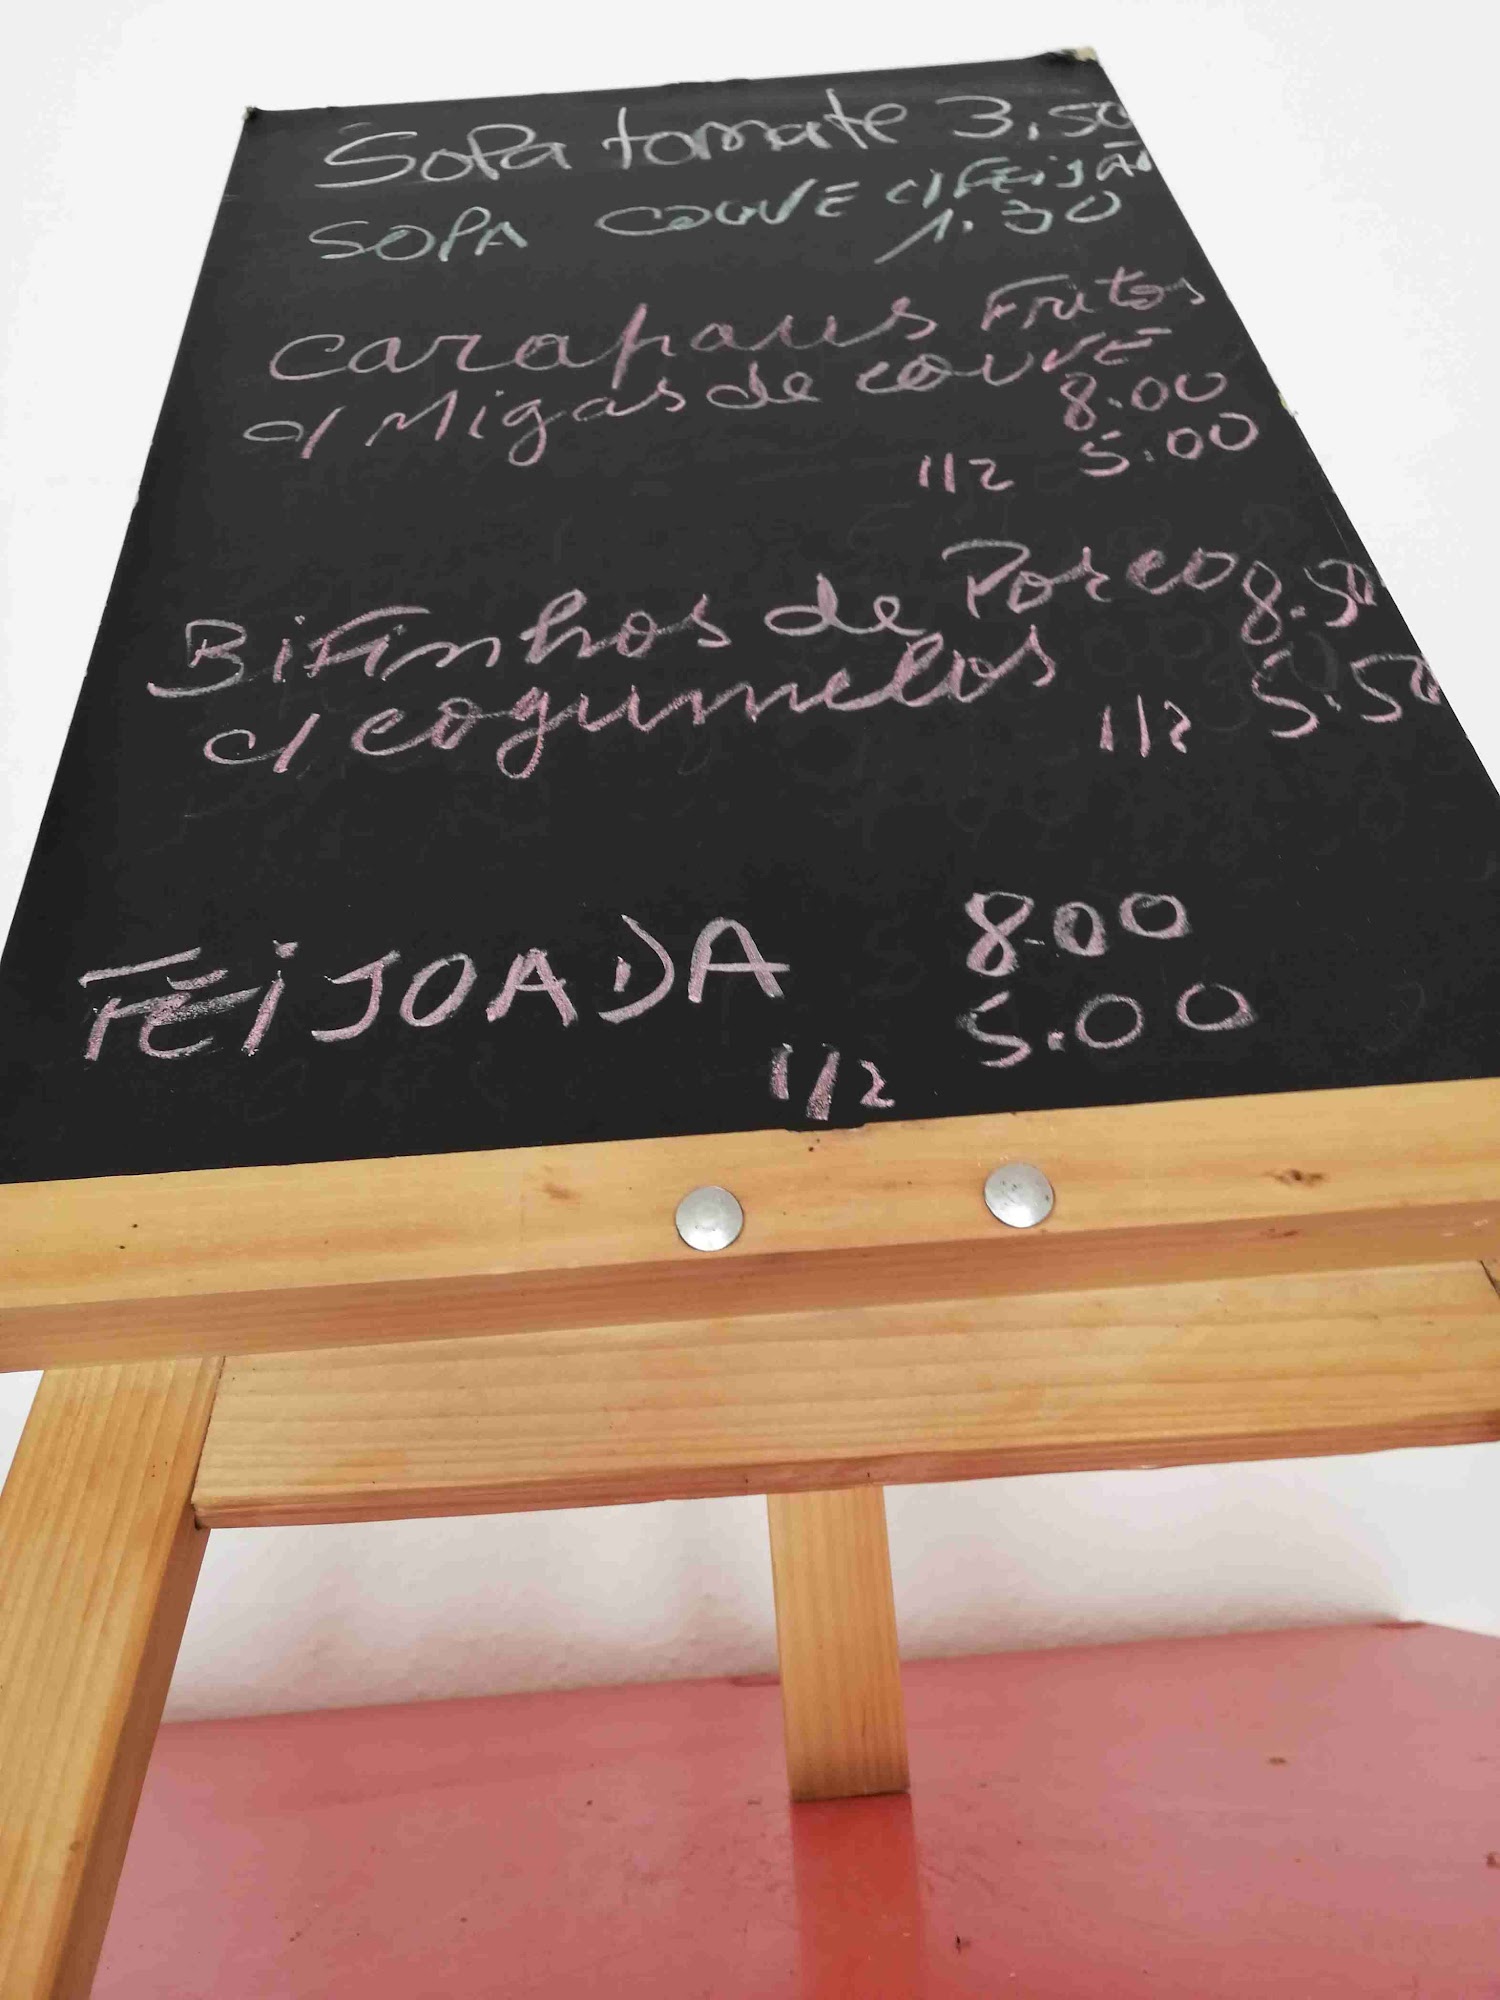 Sopa tomate 3.50
SOPA COUVE C/FEIJÃO
1.30
Carapaus Fritos
c/ Migas de couve
8.00
1/2 5.00
Bifinhos de Porco 8.50
c/ cogumelos
1/2 5.50
FEIJOADA 8.00
1/2 5.00